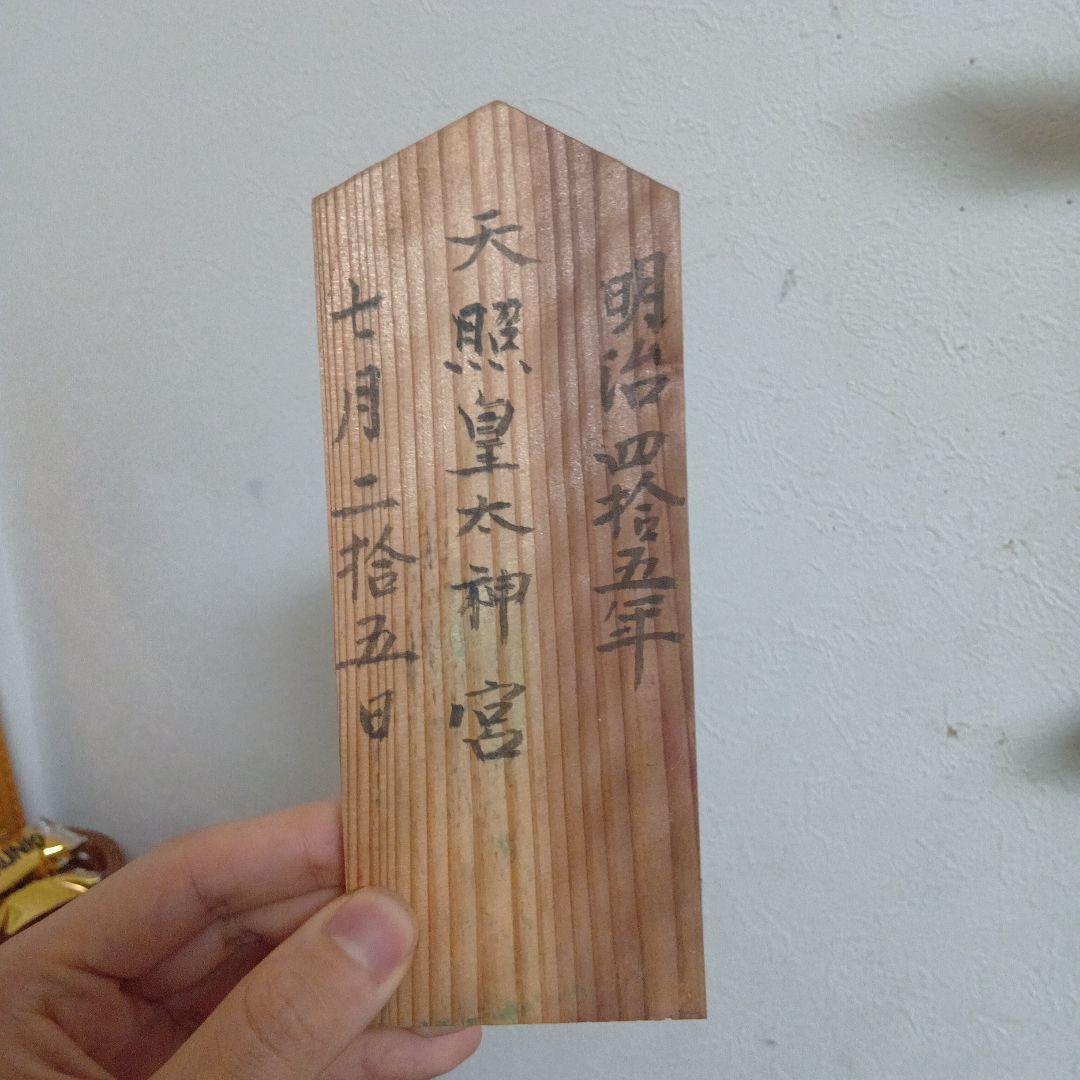 明治四拾五年
天照皇太神宮
七月二拾五日